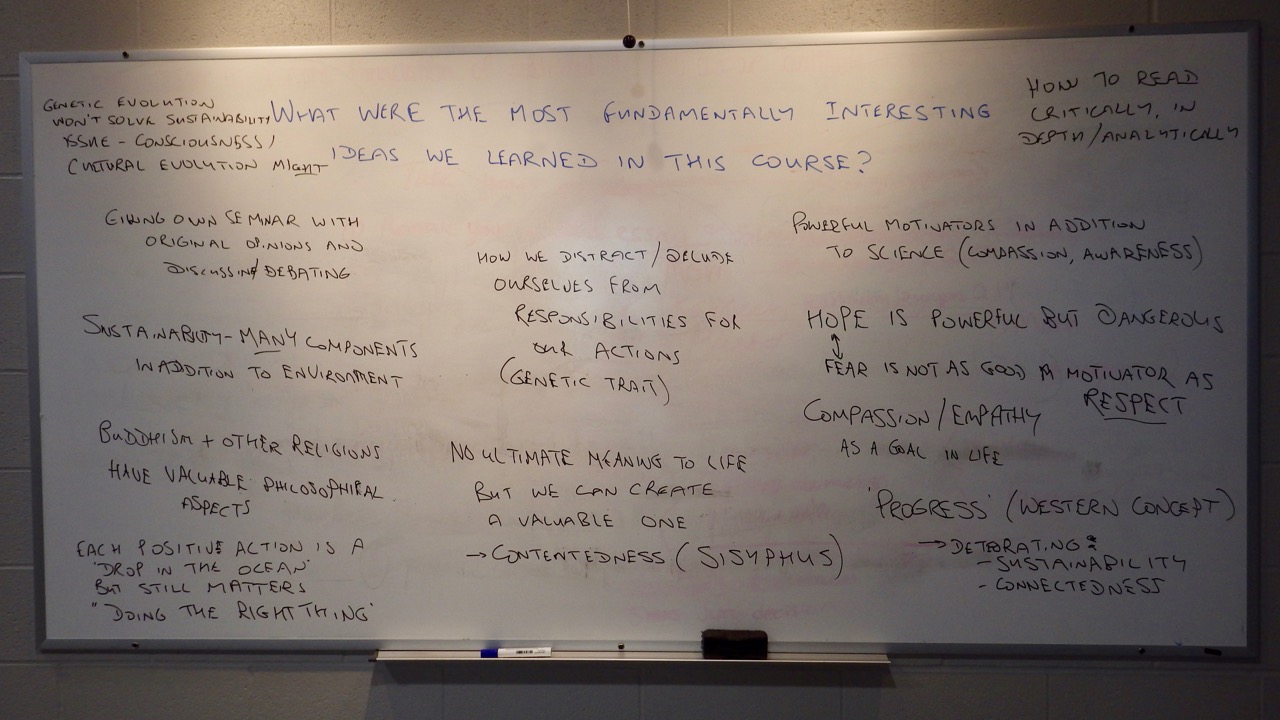 WHAT WERE THE MOST FUNDAMENTALLY INTERESTING
IDEAS WE LEARNED IN THIS COURSE?
GENETIC EVOLUTION
WON'T SOLVE SUSTAINABILITY
ISSUE - CONSCIOUSNESS/
CULTURAL EVOLUTION MIGHT
GIVING OWN SEMINAR WITH
ORIGINAL OPINIONS AND
DISCUSSING/DEBATING
SUSTAINABILITY - MANY COMPONENTS
IN ADDITION TO ENVIRONMENT
BUDDHISM + OTHER RELIGIONS
HAVE VALUABLE PHILOSOPHIRAL
ASPECTS
EACH POSITIVE ACTION IS A
'DROP IN THE OCEAN'
BUT STILL MATTERS
"DOING THE RIGHT THING'
HOW WE DISTRACT/DELUDE
OURSELVES FROM
RESPONSIBILITIES FOR
OUR ACTIONS
(GENETIC TRAIT)
NO ULTIMATE MEANING TO LIFE
BUT WE CAN CREATE
A VALUABLE ONE
→ CONTENTEDNESS (SISYPHUS)
HOW TO READ
CRITICALLY, IN
DEPTH/ANALYTICALLY
POWERFUL MOTIVATORS IN ADDITION
TO SCIENCE (COMPASSION, AWARENESS)
HOPE IS POWERFUL BUT DANGEROUS
↕
FEAR IS NOT AS GOOD A MOTIVATOR AS
RESPECT
COMPASSION/EMPATHY
AS A GOAL IN LIFE
'PROGRESS' (WESTERN CONCEPT)
→ DETEORATING:
- SUSTAINABILITY
- CONNECTEDNESS